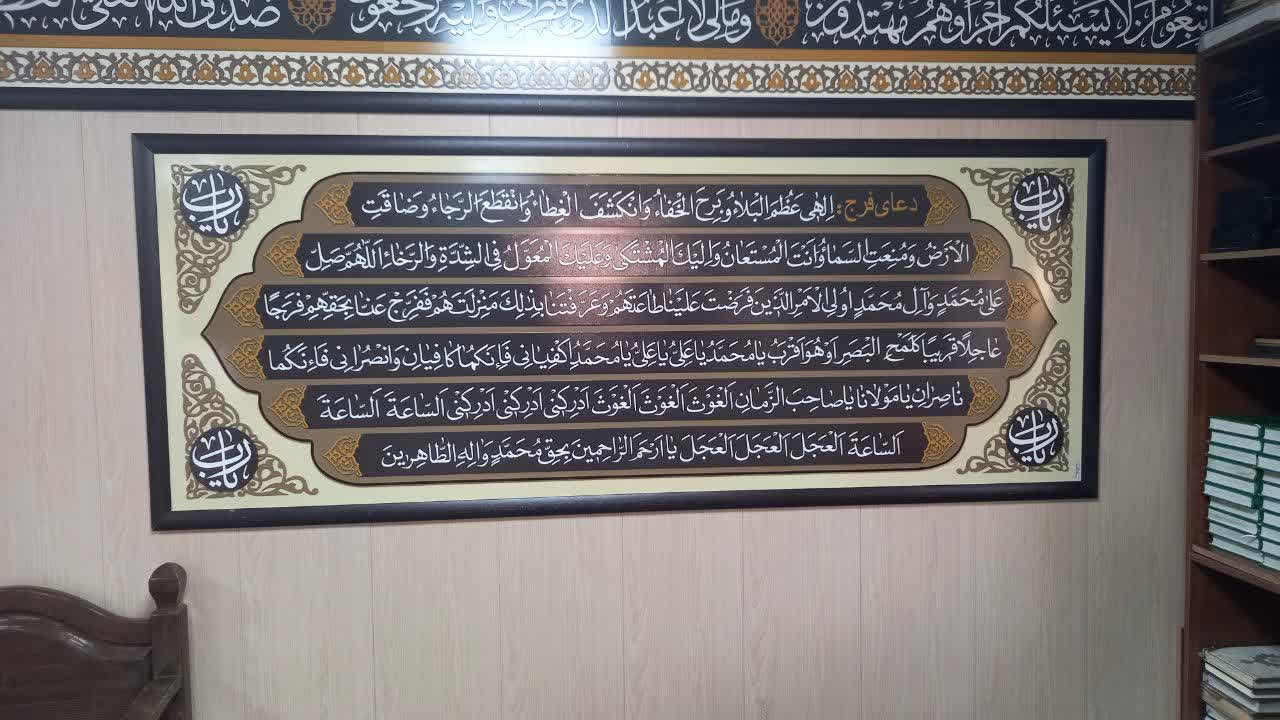 تبعوا من لا يسئلكم اجرا وهم مهتدون وما لى لا اعبد الذى فطرنى واليه ترجعون صدق الله العلى
يا رب
يا رب
دعای فرج: اِلهى عَظُمَ الْبَلاءُ وَبَرِحَ الْخَفاءُ وَانْكَشَفَ الْغِطاءُ وَانْقَطَعَ الرَّجاءُ وَضاقَتِ
الاَرْضُ وَمُنِعَتِ السَّماءُ وَاَنْتَ الْمُسْتَعانُ وَاِلَيْكَ الْمُشْتَكى وَعَلَيْكَ الْمُعَوَّلُ فِى الشِّدَةِ وَالرَّخاءِ اَللّهُمَّ صَلِّ
عَلى مُحَمَّدٍ وَآلِ مُحَمَّدٍ اُولِى الاَمْرِ الَّذينَ فَرَضْتَ عَلَيْنا طاعَتَهُمْ وَعَرَّفْتَنا بِذلِكَ مَنْزِلَتَهُمْ فَفَرِّجْ عَنا بِحَقِّهِمْ فَرَجًا
عاجِلًا قَريبًا كَلَمْحِ الْبَصَرِ اَوْ هُوَ اَقْرَبُ يا مُحَمَّدُ يا عَلِىُّ يا عَلِىُّ يا مُحَمَّدُ اِكْفِيانى فَاِنَّكُما كافِيانِ وَانْصُرانى فَاِنَّكُما
ناصِرانِ يا مَوْلانا يا صاحِبَ الزَّمانِ اَلْغَوْثَ اَلْغَوْثَ اَلْغَوْثَ اَدْرِكْنى اَدْرِكْنى اَدْرِكْنى اَلسّاعَةَ اَلسّاعَةَ
اَلسّاعَةَ اَلْعَجَلَ اَلْعَجَلَ اَلْعَجَلَ يا اَرْحَمَ الرّاحِمينَ بِحَقِّ مُحَمَّدٍ وَالِهِ الطّاهِرينَ
يا رب
يا رب